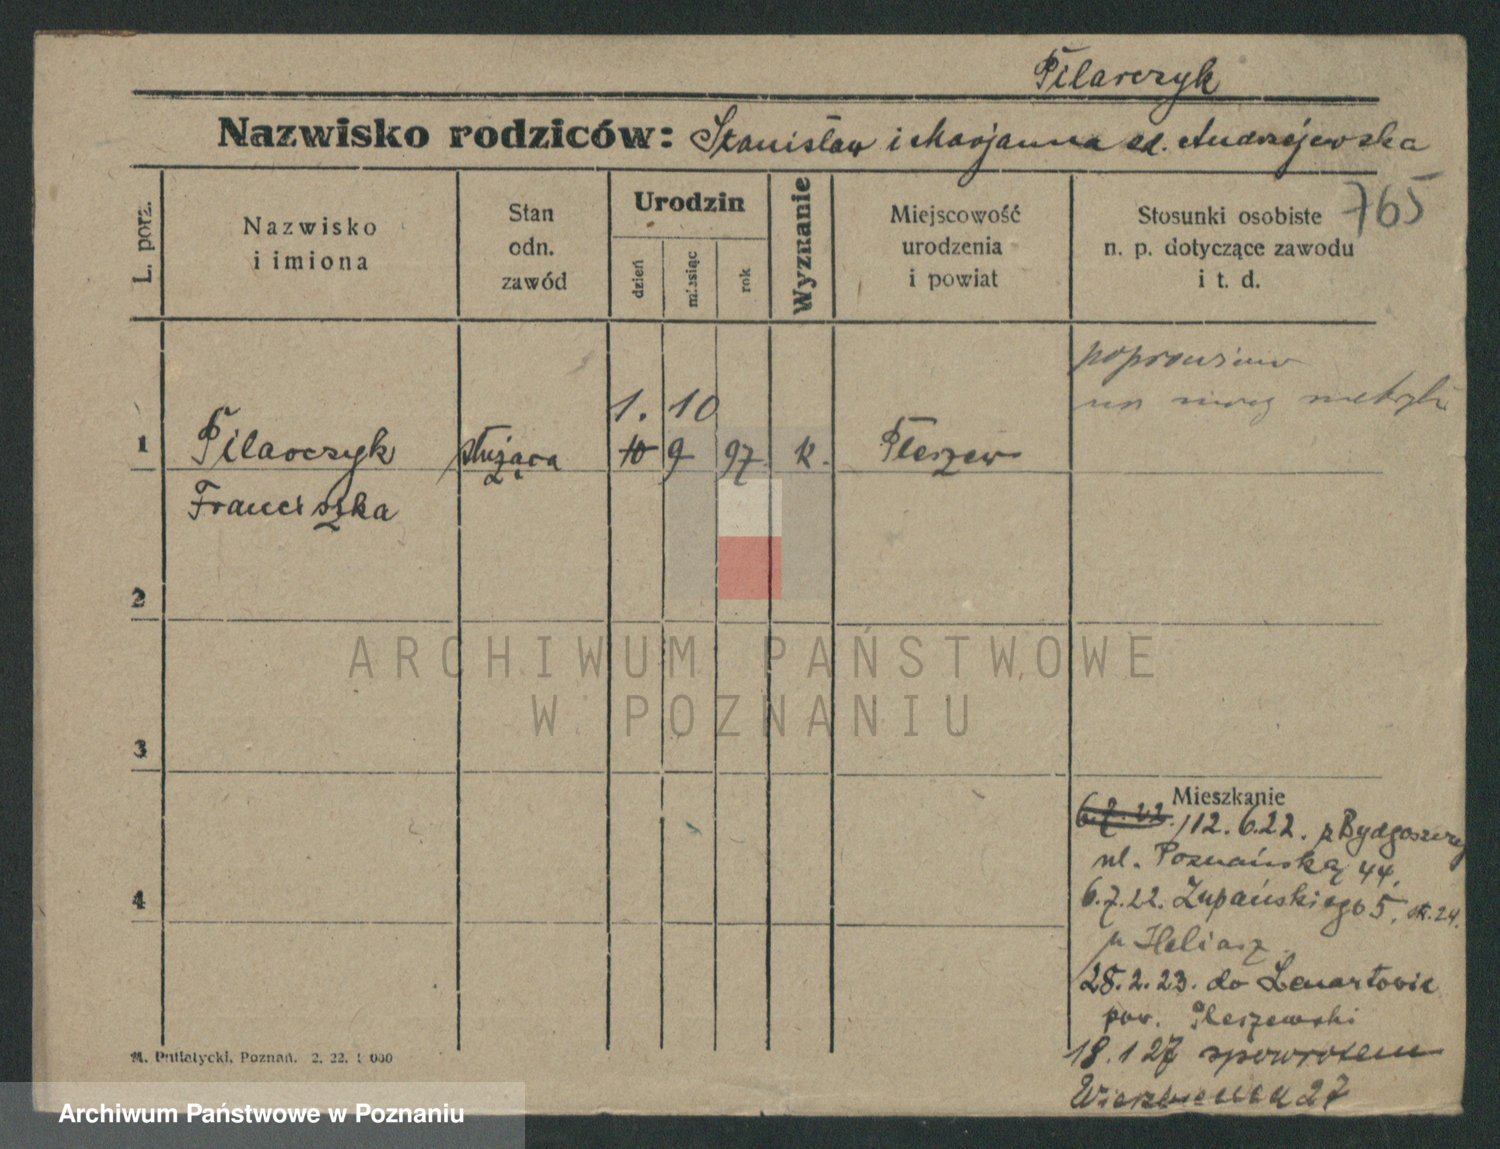 Pilarczyk
Nazwisko rodziców: Stanisław i Marjanna zd. Andrzejewska
765
L. porz.
Nazwisko
i imiona
Stan
odn.
zawód
Urodzin
dzień
miesiąc
rok
Wyznanie
Miejscowość
urodzenia
i powiat
Stosunki osobiste
n. p. dotyczące zawodu
i t. d.
poprawiono
na mocy metryki
1. 10
1 Pilarczyk służąca 10 9 97. k. Pleszew
Franciszka
2
3
4
ARCHIWUM PAŃSTWOWE
W POZNANIU
Mieszkanie
6.7.22. 12.6.22. z Bydgoszczy
ul. Poznańską 44.
6.7.22. Żupańskiego 5,
u Heliasz
28.2.23. do Lenartowic
pow. Pleszewski
18.1 27 spowrotem
27
M. Putiatycki, Poznań. 2. 22. 1 000
Archiwum Państwowe w Poznaniu